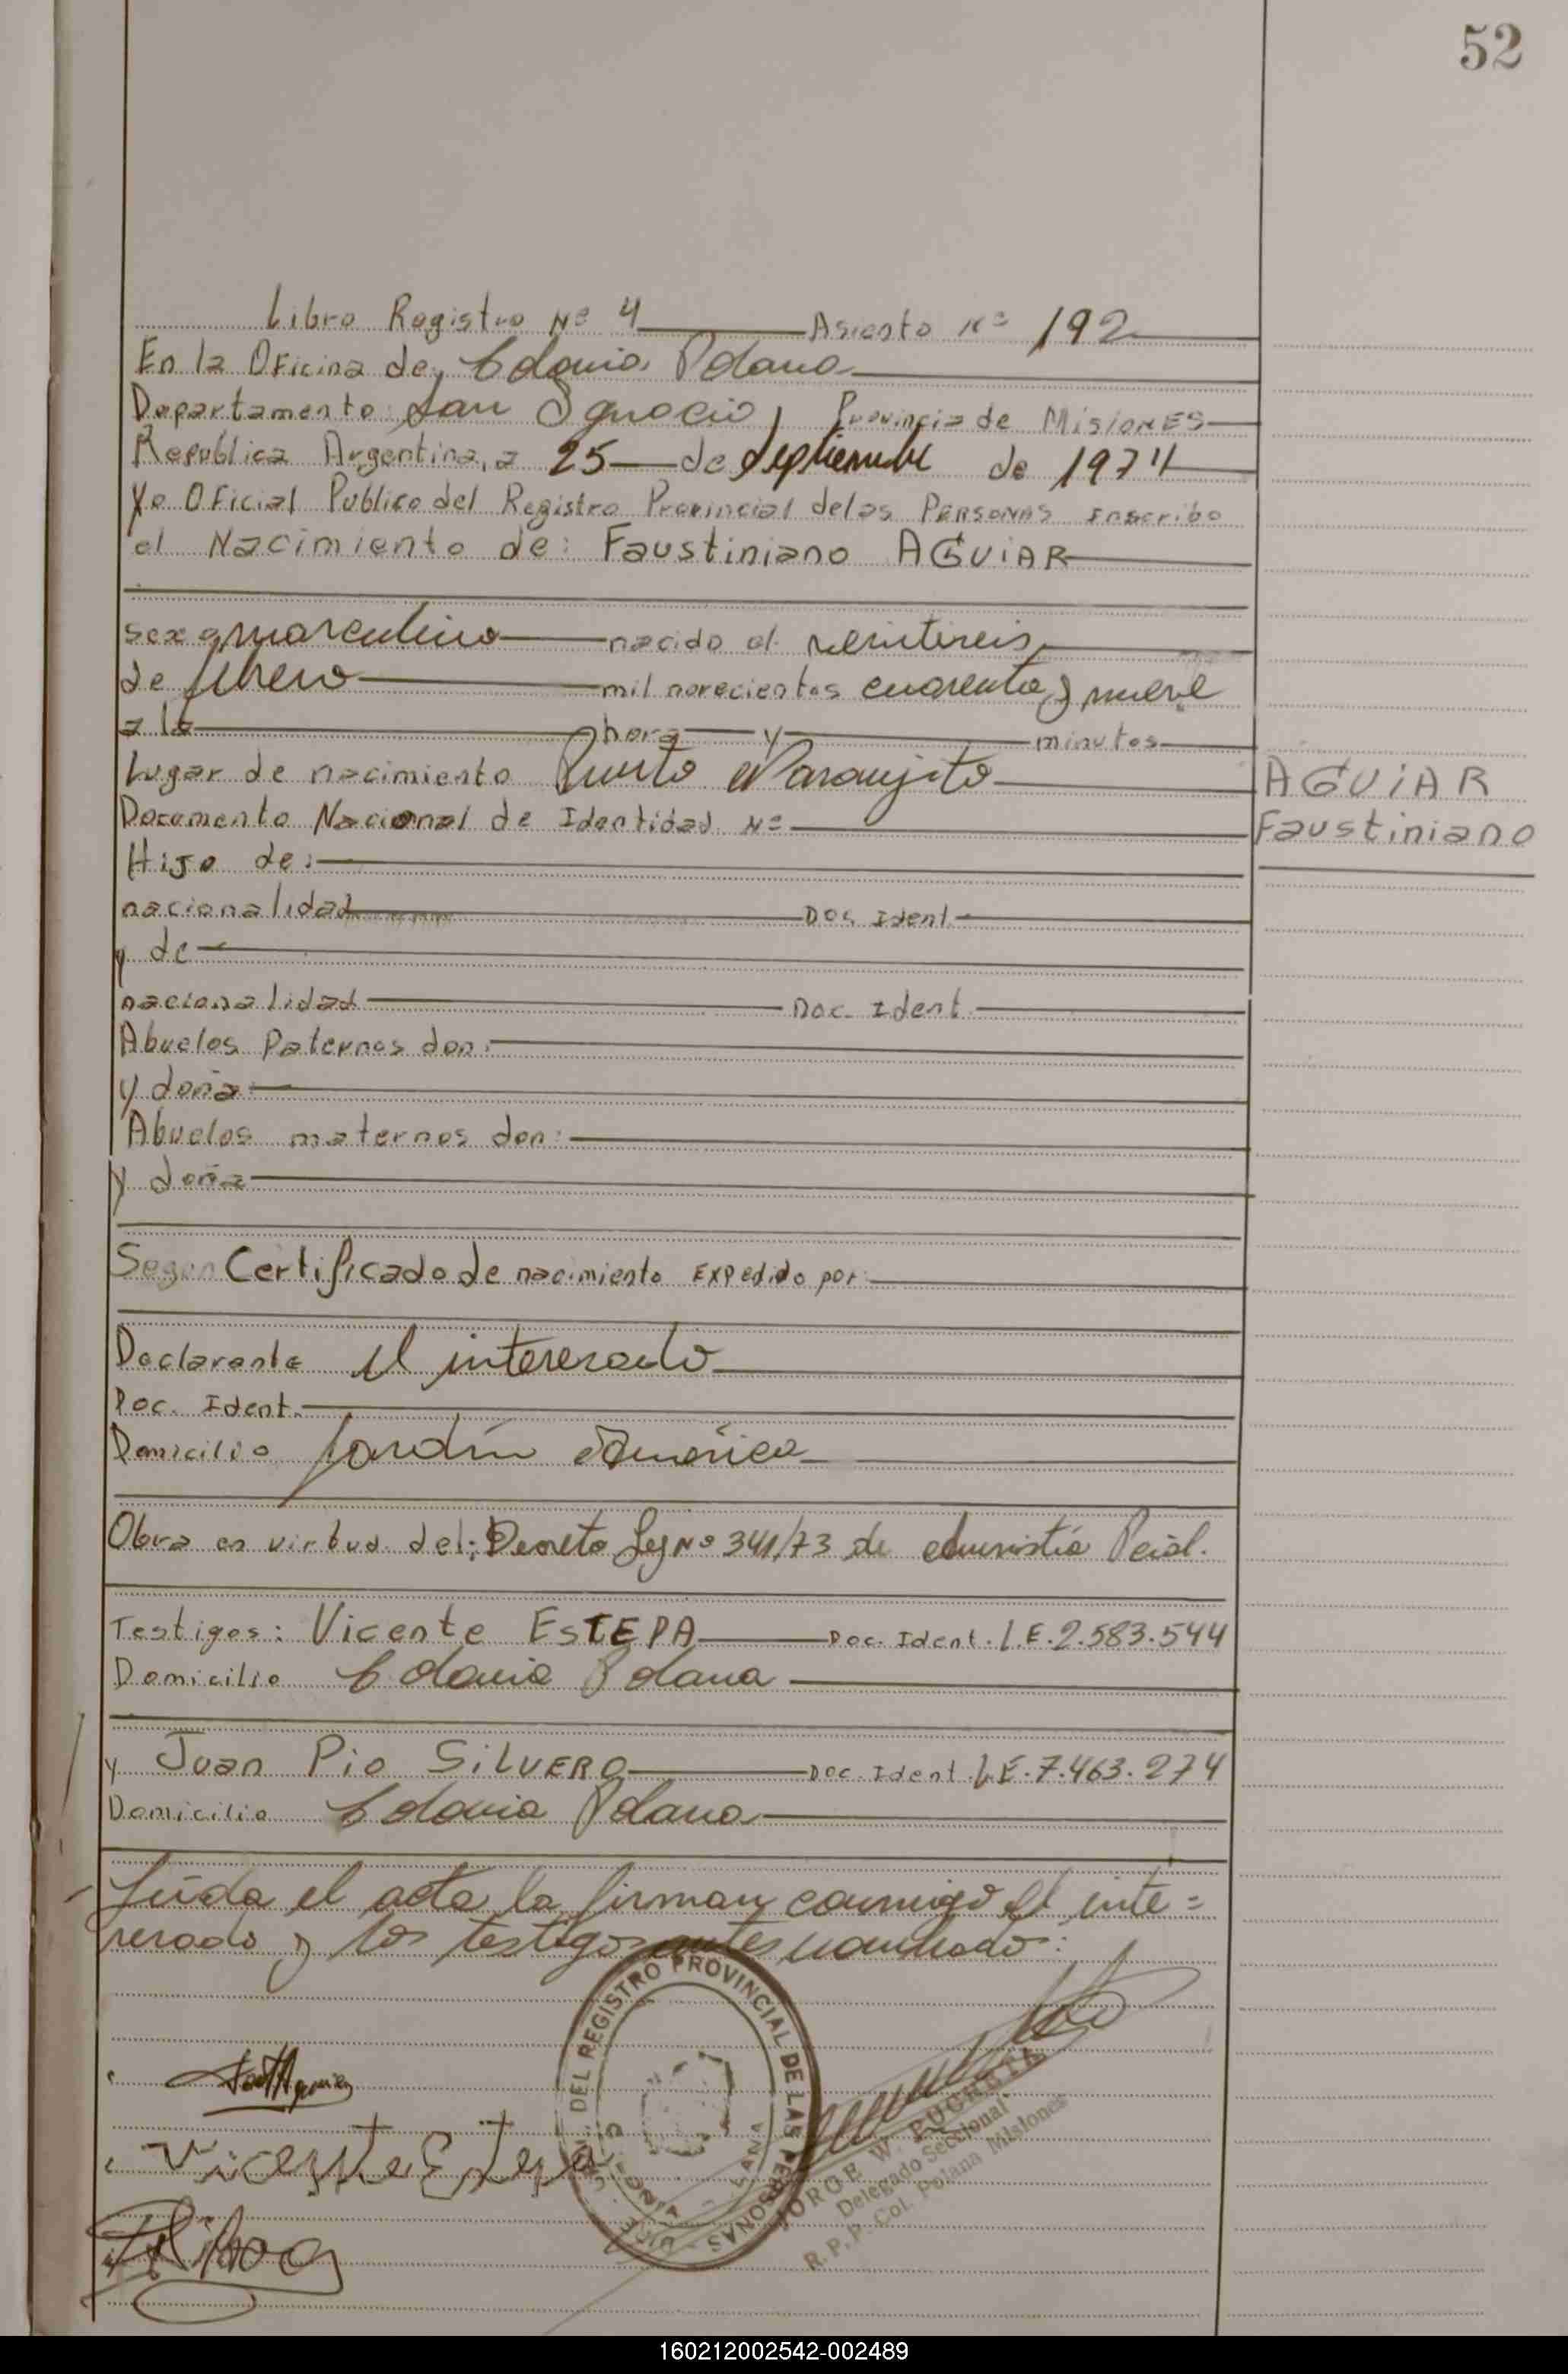 52
Libro Registro Nº 4 Asiento Nº 192
En la Oficina de Colonia Polana
Departamento San Ignacio, Provincia de MISIONES
Republica Argentina, a 25 de Septiembre de 1974
Yo Oficial Publico del Registro Provincial de las PERSONAS Inscribo
el Nacimiento de: Faustiniano AGUIAR
sexo masculino nacido el veintiseis
de febrero mil novecientos cuarenta y nueve
a la hora y minutos
Lugar de nacimiento Puerto Naranjito
AGUIAR
Documento Nacional de Identidad Nº
Faustiniano
Hijo de:
nacionalidad Doc Ident.
y de
nacionalidad Doc. Ident.
Abuelos Paternos don:
y doña
Abuelos maternos don:
y doña
Segun Certificado de nacimiento Expedido por:
Declarante el interesado
Doc. Ident.
Domicilio Jardín América
Obra en virtud del: Decreto Ley Nº 341/73 de Pcial.
Testigos: Vicente ESTEPA Doc. Ident. L.E. 2.583.544
Domicilio Colonia Polana
y Juan Pio SILVERO Doc. Ident. L.E. 7.463.274
Domicilio Colonia Polana
Leída el acta la firman conmigo el inte=
resado y los testigos antes nombrado:
DEL REGISTRO PROVINCIAL DE LAS PERSONAS
Vicente Estepa
JORGE W. 
Delegado Seccional
R.P.P. Col. Polana Misiones
160212002542-002489